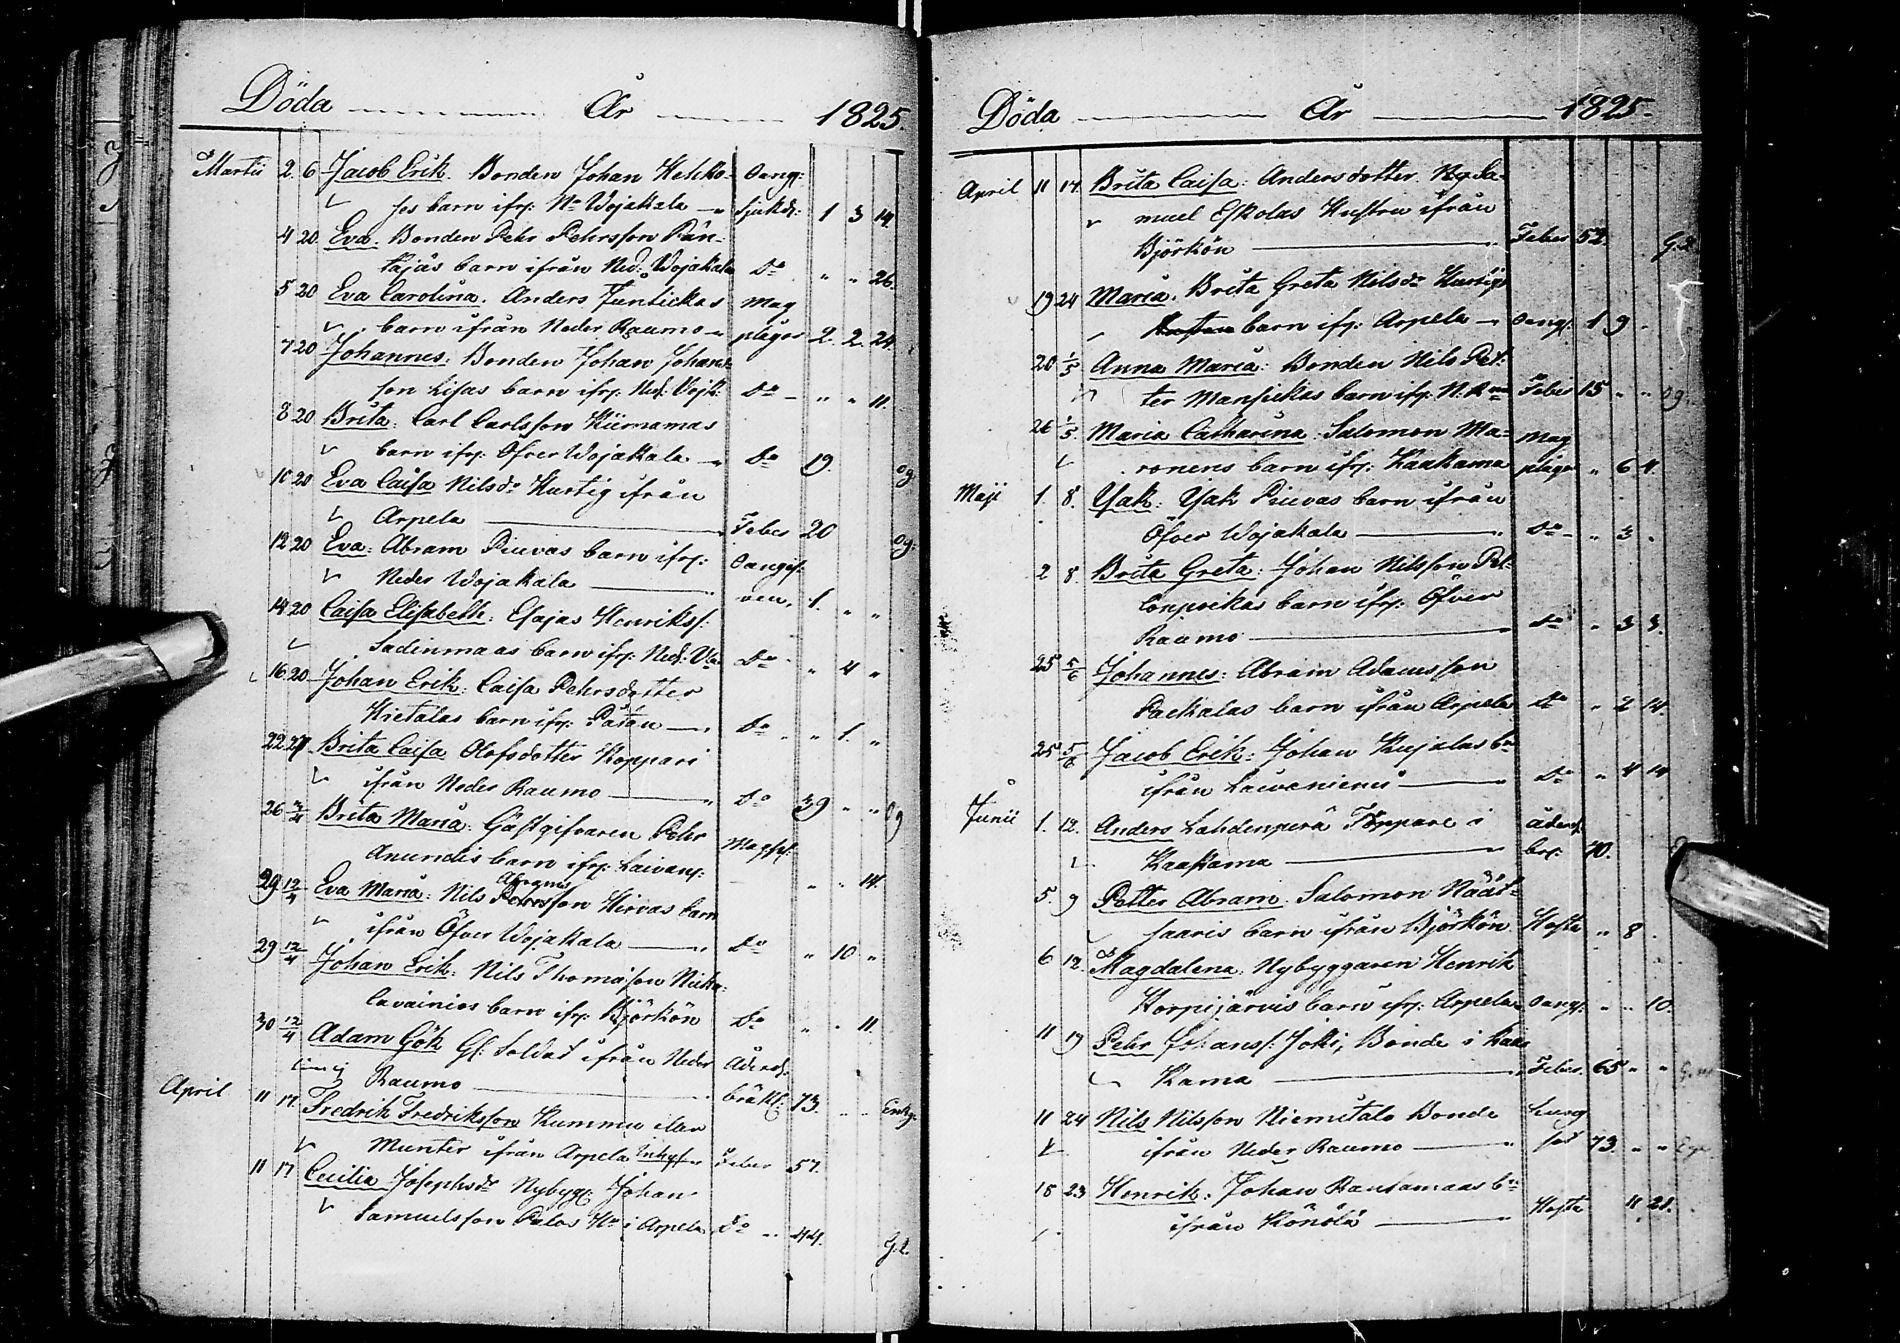 Döda År 1825.
Martii 2. 6 Jacob Erik. Bonden Johan Hehko- Oang:
jos barn ifr: Nr Wojakala sjukd: 1 3 14.
4 20. Eva. Bonden Pehr Pehrsson Pän-
täjäs barn ifrån Ned: Wojakala Do " " 26.
5 20 Eva Carolina. Anders Juntickas mag
barn ifrån Neder Raumo plågor 2. 2. 24.
7 20 Johannes: Bonden Johan Johans-
son Lisas barn ifr: Ned: Vojk: Do " " 11.
8 20 Brita: Carl Carlsson Kiirnamas
barn ifr: Öfver Wojakala Do 19. og
10 20 Eva Caisa Nilsdr Hurtig ifrån
Arpela Feber 20 og:
12 20 Eva: Abram Piuvas barn ifr: Oangif:
Neder Wojakala ven. 1. " "
14 20 Caisa Elisabeth: Esajas Henrikss:
Sadinmaas barn ifr: Ned: Vla Do " 4 "
16 20 Johan Erik: Caisa Pehrsdotter
Hietalas barn ifr: Do " 1. "
22 27 Brita Caisa Olofsdotter Koppari
ifrån Neder Raumo Do 39 " " og
26 3/4 Brita Maria: Gästgifvaren Pehr
Anundis barn ifr: Laivanj: Magpl: " " 14.
29 12/4 Eva Maria: Nils Abrams Petersson Hirvas barn
ifrån Öfver Wojakala Do " 10 "
29 12/4 Johan Erik: Nils Thomasson Nicka-
lavainios barn ifr: Björkön Do " " 11.
30 12/4 Adam Gök Gl: Soldat ifrån Neder Åderd:
Raumo bräkl: 73. " " Enkg:
April 11 17. Fredrik Fredriksson Kummu eller
Munter ifrån Arpela Inhys Feber 57.
11 17 Cecilia Josephsdr Nybygg: Johan
Samuelsson Palos Hu i Arpela Do 44. G.2.
Döda År 1825.
April 11 17. Brita Caisa: Andersdotter Nyb Sa-
muel Eskolas Hustru ifrån
Björkön Feber 52 G.2.
19 24 Maria. Brita Greta Nilsdr Hurtigs
barn ifr: Arpela Oang: 1 9 "
20 1/5 Anna Maria: Bonden Nils Pet-
ter Mansikas barn ifr: N. R:mo Feber 15 " " og:
26 1/5 Maria Catharina: Salomon Ma- mag
ronens barn ifr: Kaakama plågor " 6 4.
Maji 1. 8. Isak: Isak Piuvas barn ifrån
Öfver Wojakala Do " 3 "
2 8 Brita Greta: Johan Nilsson Pel-
lonpeikas barn ifr: Öfver
Raumo Do " 3 3.
25 5/6 Johannes: Abram Adamsson
Packalas barn ifrån Arpela Do " 2 14.
25 5/6 Jacob Erik: Johan Kujalas bn
ifrån Laivaniemi Do " 4 14
Junii 1. 12. Anders Lahdenperä Torppare i åderd:
Kaakama brå: 70.
5. 9 Petter Abram. Salomon Näät-
saaris barn ifrån Björkön Hosta " 8 "
6 12. Magdalena: Nybyggaren Henrik
Korpijärvis barn ifr: Arpela Oang: " " 10.
11 19 Pehr Johanss: Joki, Bonde i Kaa-
kama Feber. 65 " "
11 24 Nils Nilsson Niemitalo Bonde Lung
ifrån Neder Raumo sot 73. " "
15 23 Henrik: Johan Rantamaas bn
ifrån Könölä Hosta 11. 21.